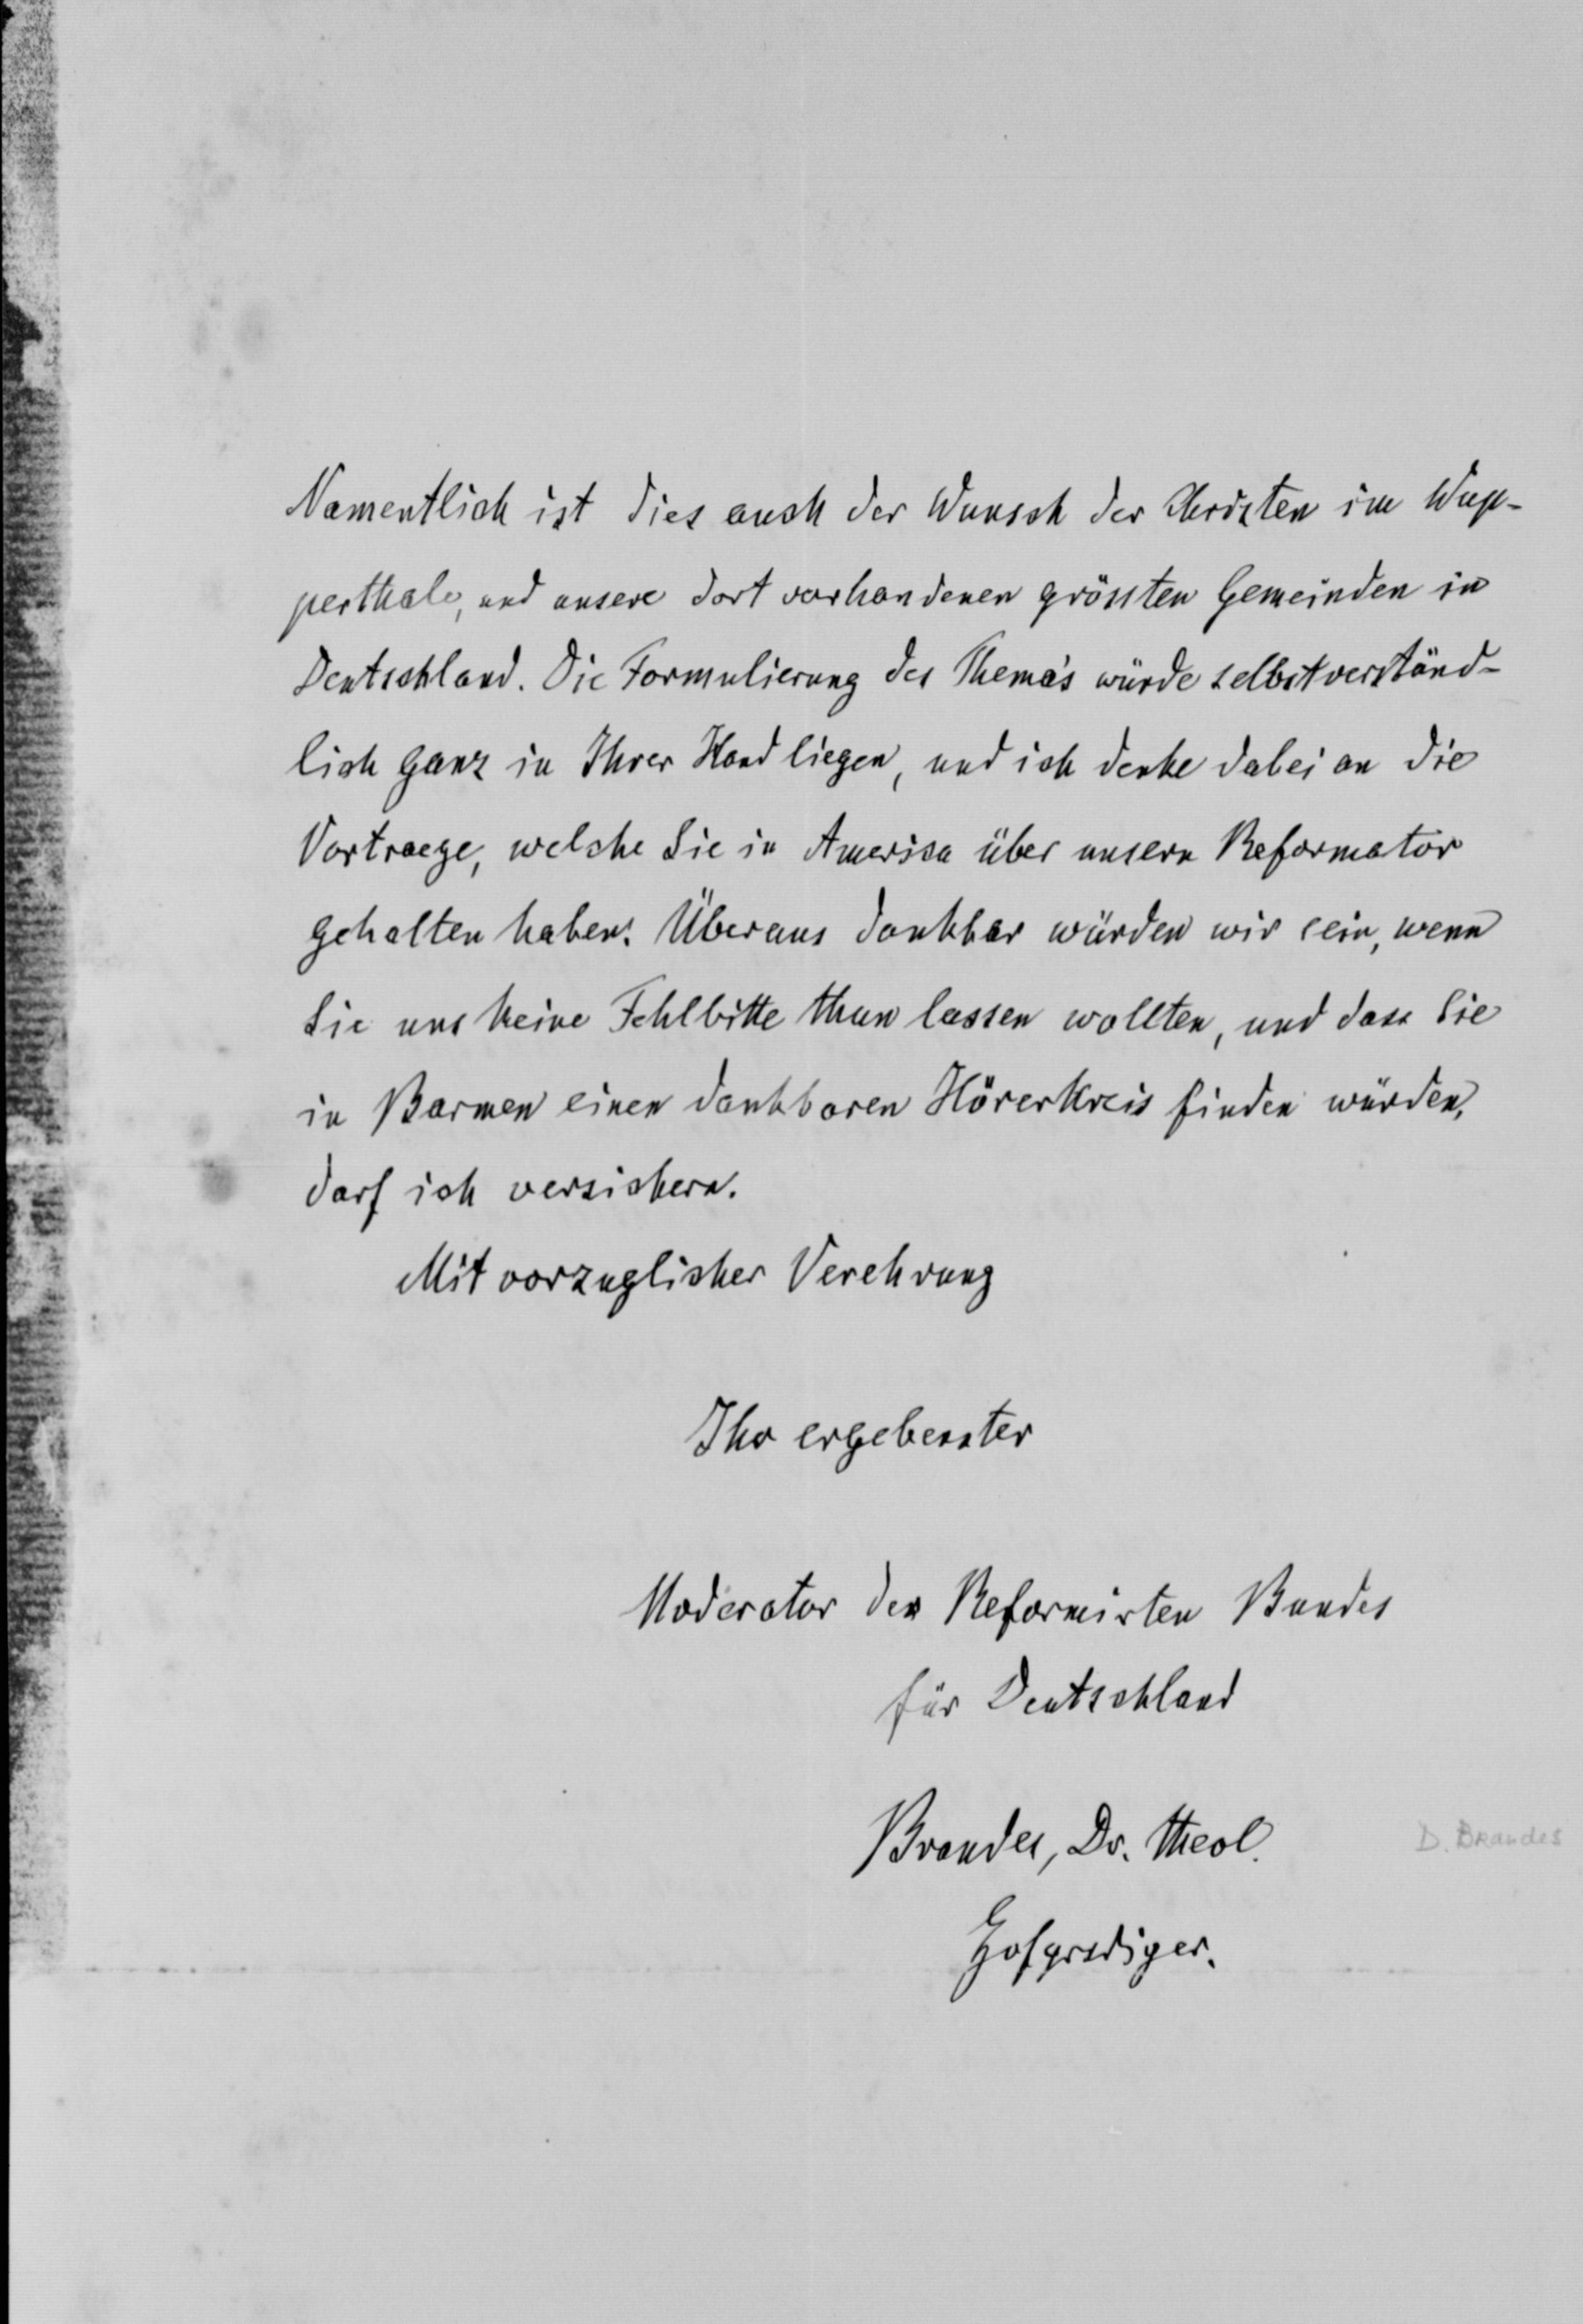 Namentlich ist dies auch der Wunsch der Christen im Wup-
perthale, und unsere dort vorhandenen grössten Gemeinden in
Deutschland. Die Formulierung des Thema's würde selbstverständ-
lich ganz in Ihrer Hand liegen, und ich denke dabei an die
Vortraege, welche Sie in America über unsern Reformator
gehalten haben. Überaus dankbar würden wir sein, wenn
Sie uns keine Fehlbitte thun lassen wollten, und dass Sie
in Barmen einen dankbaren Hörerkreis finden würden,
darf ich versichern.
Mit vorzuglicher Verehrung
Ihr ergebenster
Moderator des Reformirten Bundes
für Deutschland
Brandes, Dr. theol.
D. Brandes
Hofprediger.